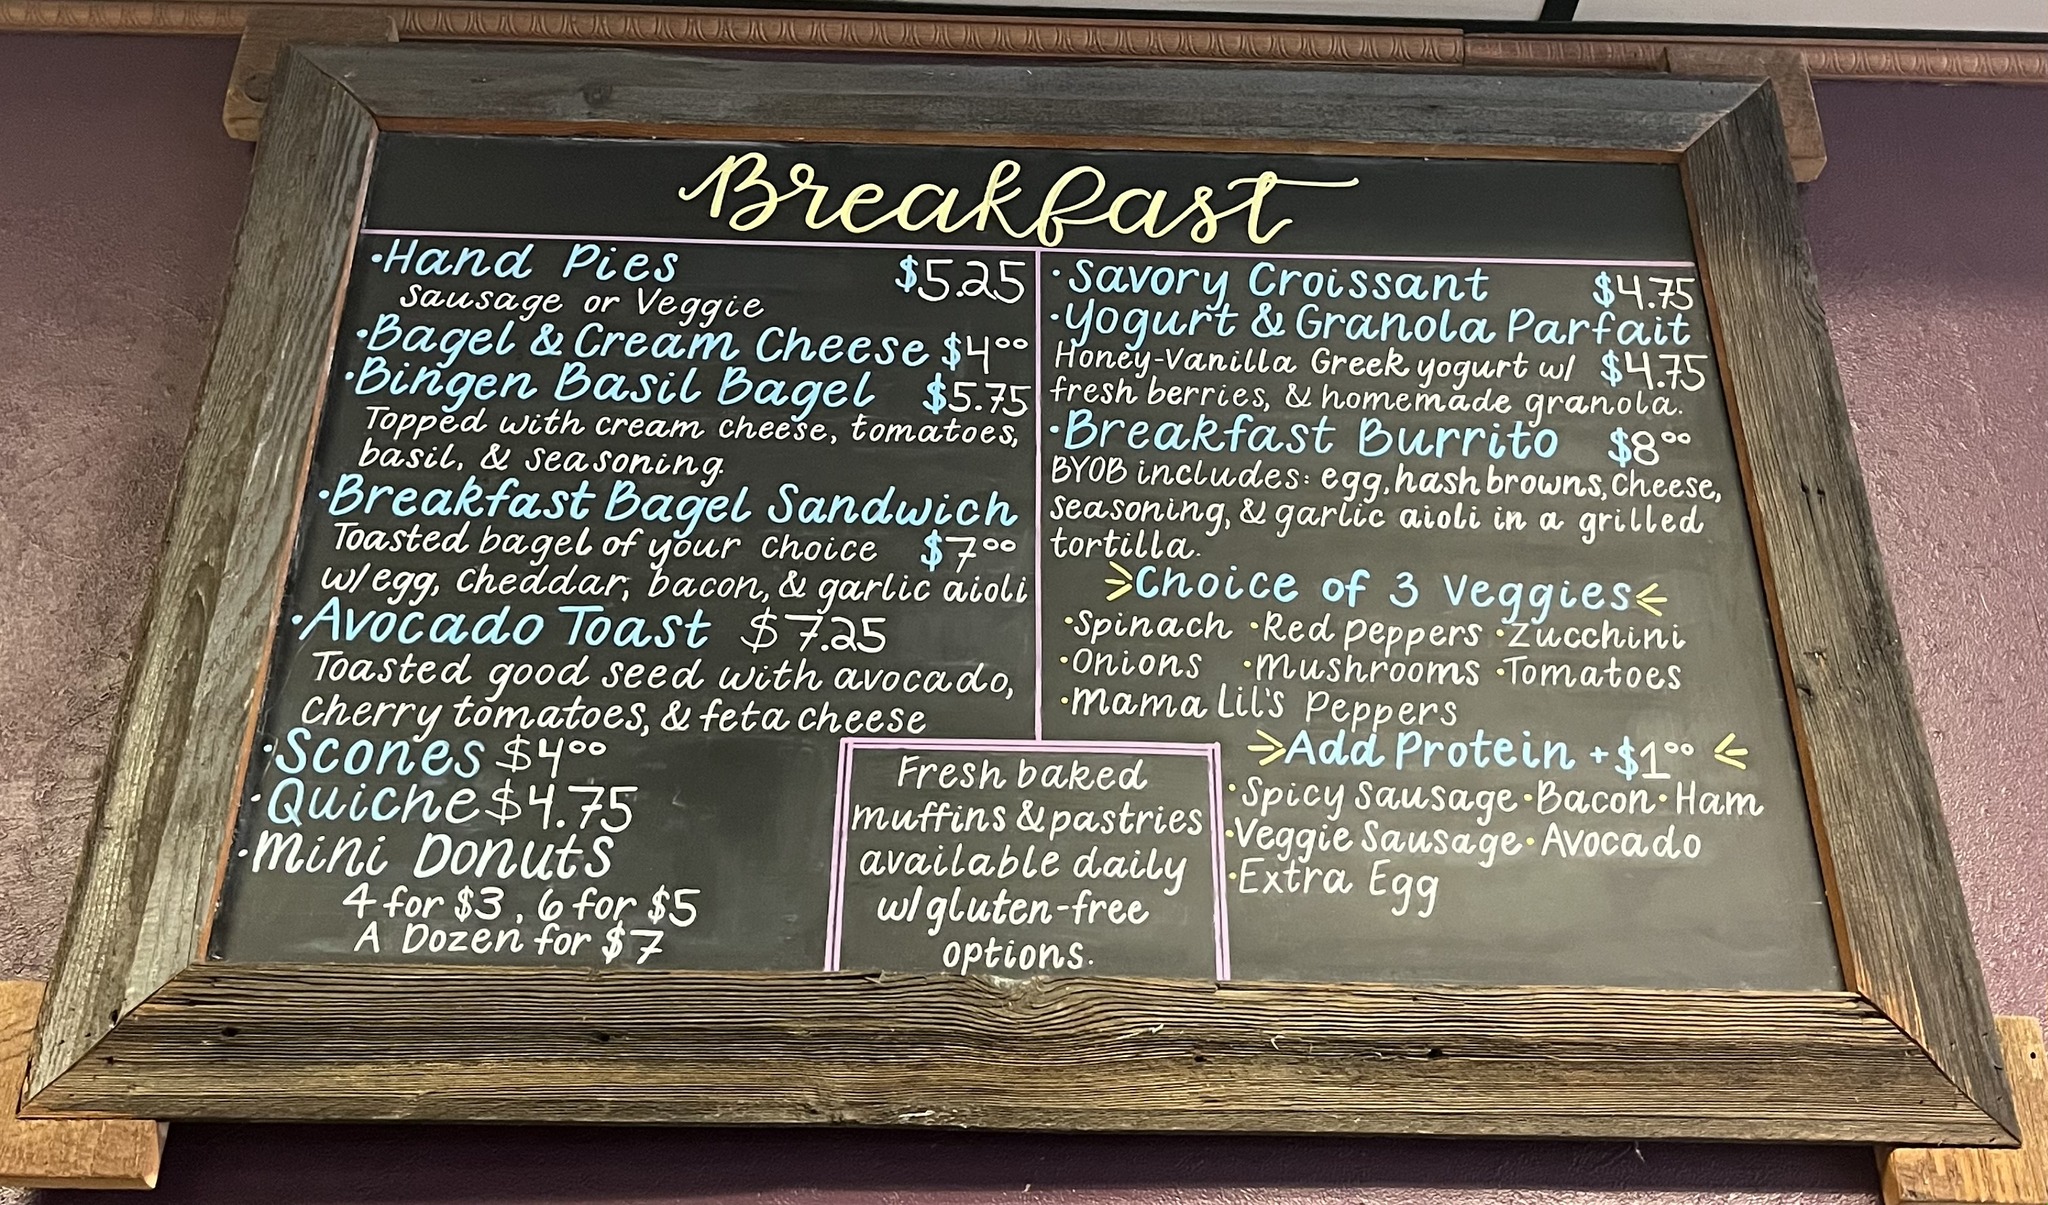 Breakfast
•Hand Pies $5.25
Sausage or Veggie
•Bagel & Cream Cheese $4⁰⁰
•Bingen Basil Bagel $5.75
Topped with cream cheese, tomatoes,
basil, & seasoning.
•Breakfast Bagel Sandwich
Toasted bagel of your choice $7⁰⁰
w/egg, cheddar, bacon, & garlic aioli
•Avocado Toast $7.25
Toasted good seed with avocado,
cherry tomatoes, & feta cheese
•Scones $4⁰⁰
•Quiche $4.75
•Mini Donuts
4 for $3, 6 for $5
A Dozen for $7
•Savory Croissant $4.75
•Yogurt & Granola Parfait
Honey-Vanilla Greek yogurt w/ $4.75
fresh berries, & homemade granola.
•Breakfast Burrito $8⁰⁰
BYOB includes: egg, hash browns, cheese,
seasoning, & garlic aioli in a grilled
tortilla.
Choice of 3 Veggies
•Spinach •Red Peppers •Zucchini
•Onions •Mushrooms •Tomatoes
•Mama Lil's Peppers
Add Protein +$1⁰⁰
•Spicy Sausage •Bacon •Ham
•Veggie Sausage •Avocado
•Extra Egg
Fresh baked
muffins & pastries
available daily
w/gluten-free
options.